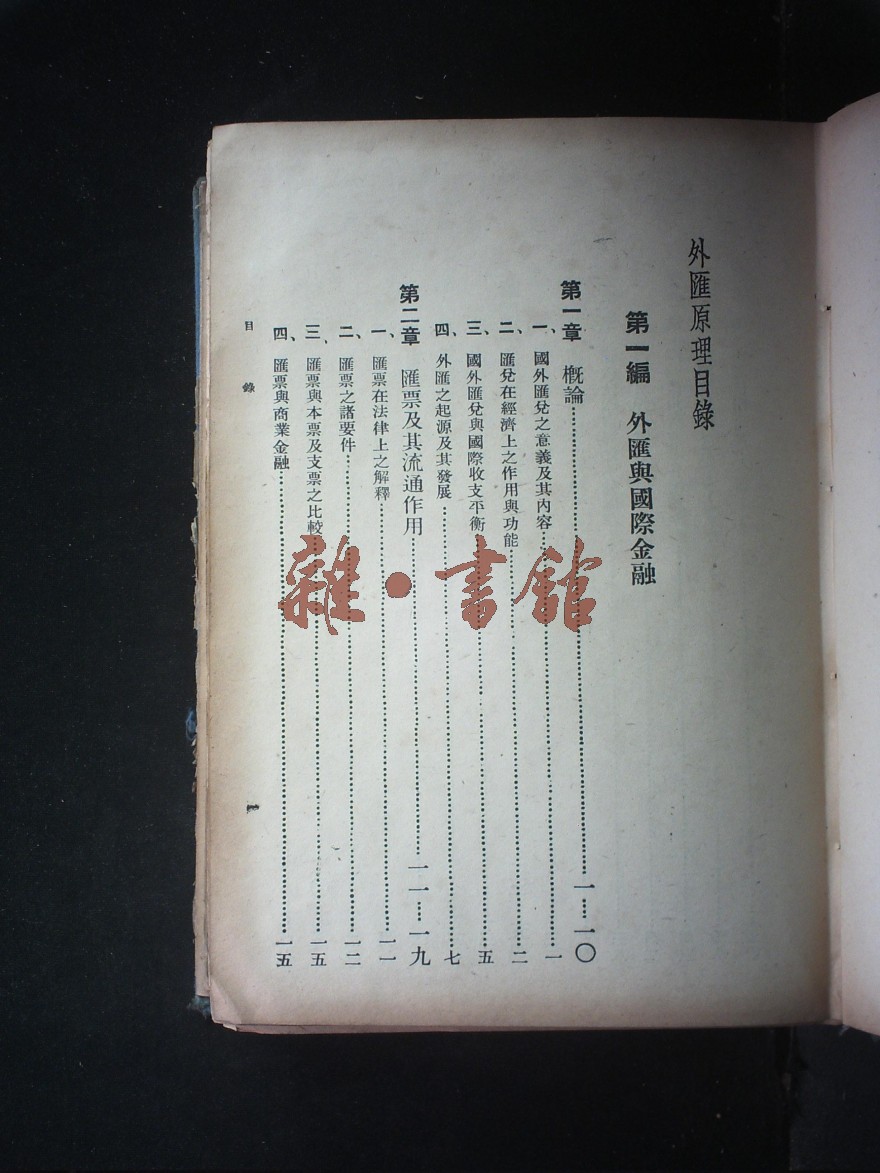 外匯原理目錄
第一編 外匯與國際金融
第一章 概論……一……一〇
一、國外匯兌之意義及其內容……一
二、匯兌在經濟上之作用與功能……二
三、國外匯兌與國際收支平衡……五
四、外匯之起源及其發展……七
第二章 匯票及其流通作用……一一……一九
一、匯票在法律上之解釋……一一
二、匯票之諸要件……一二
三、匯票與本票及支票之比較……一五
四、匯票與商業金融……一五
目錄
一
雜·書館